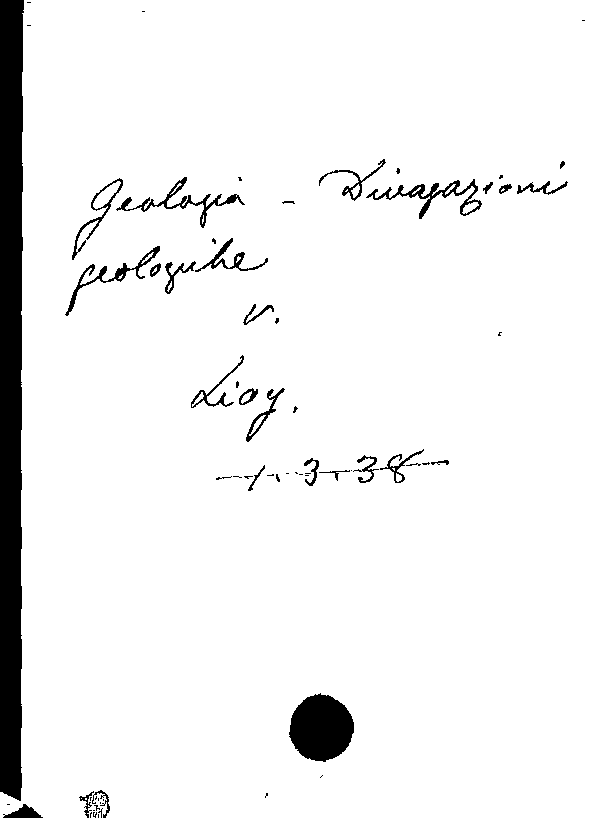 Geologia - Divagazioni
geologiche
v.
Lioy.
1.3.38